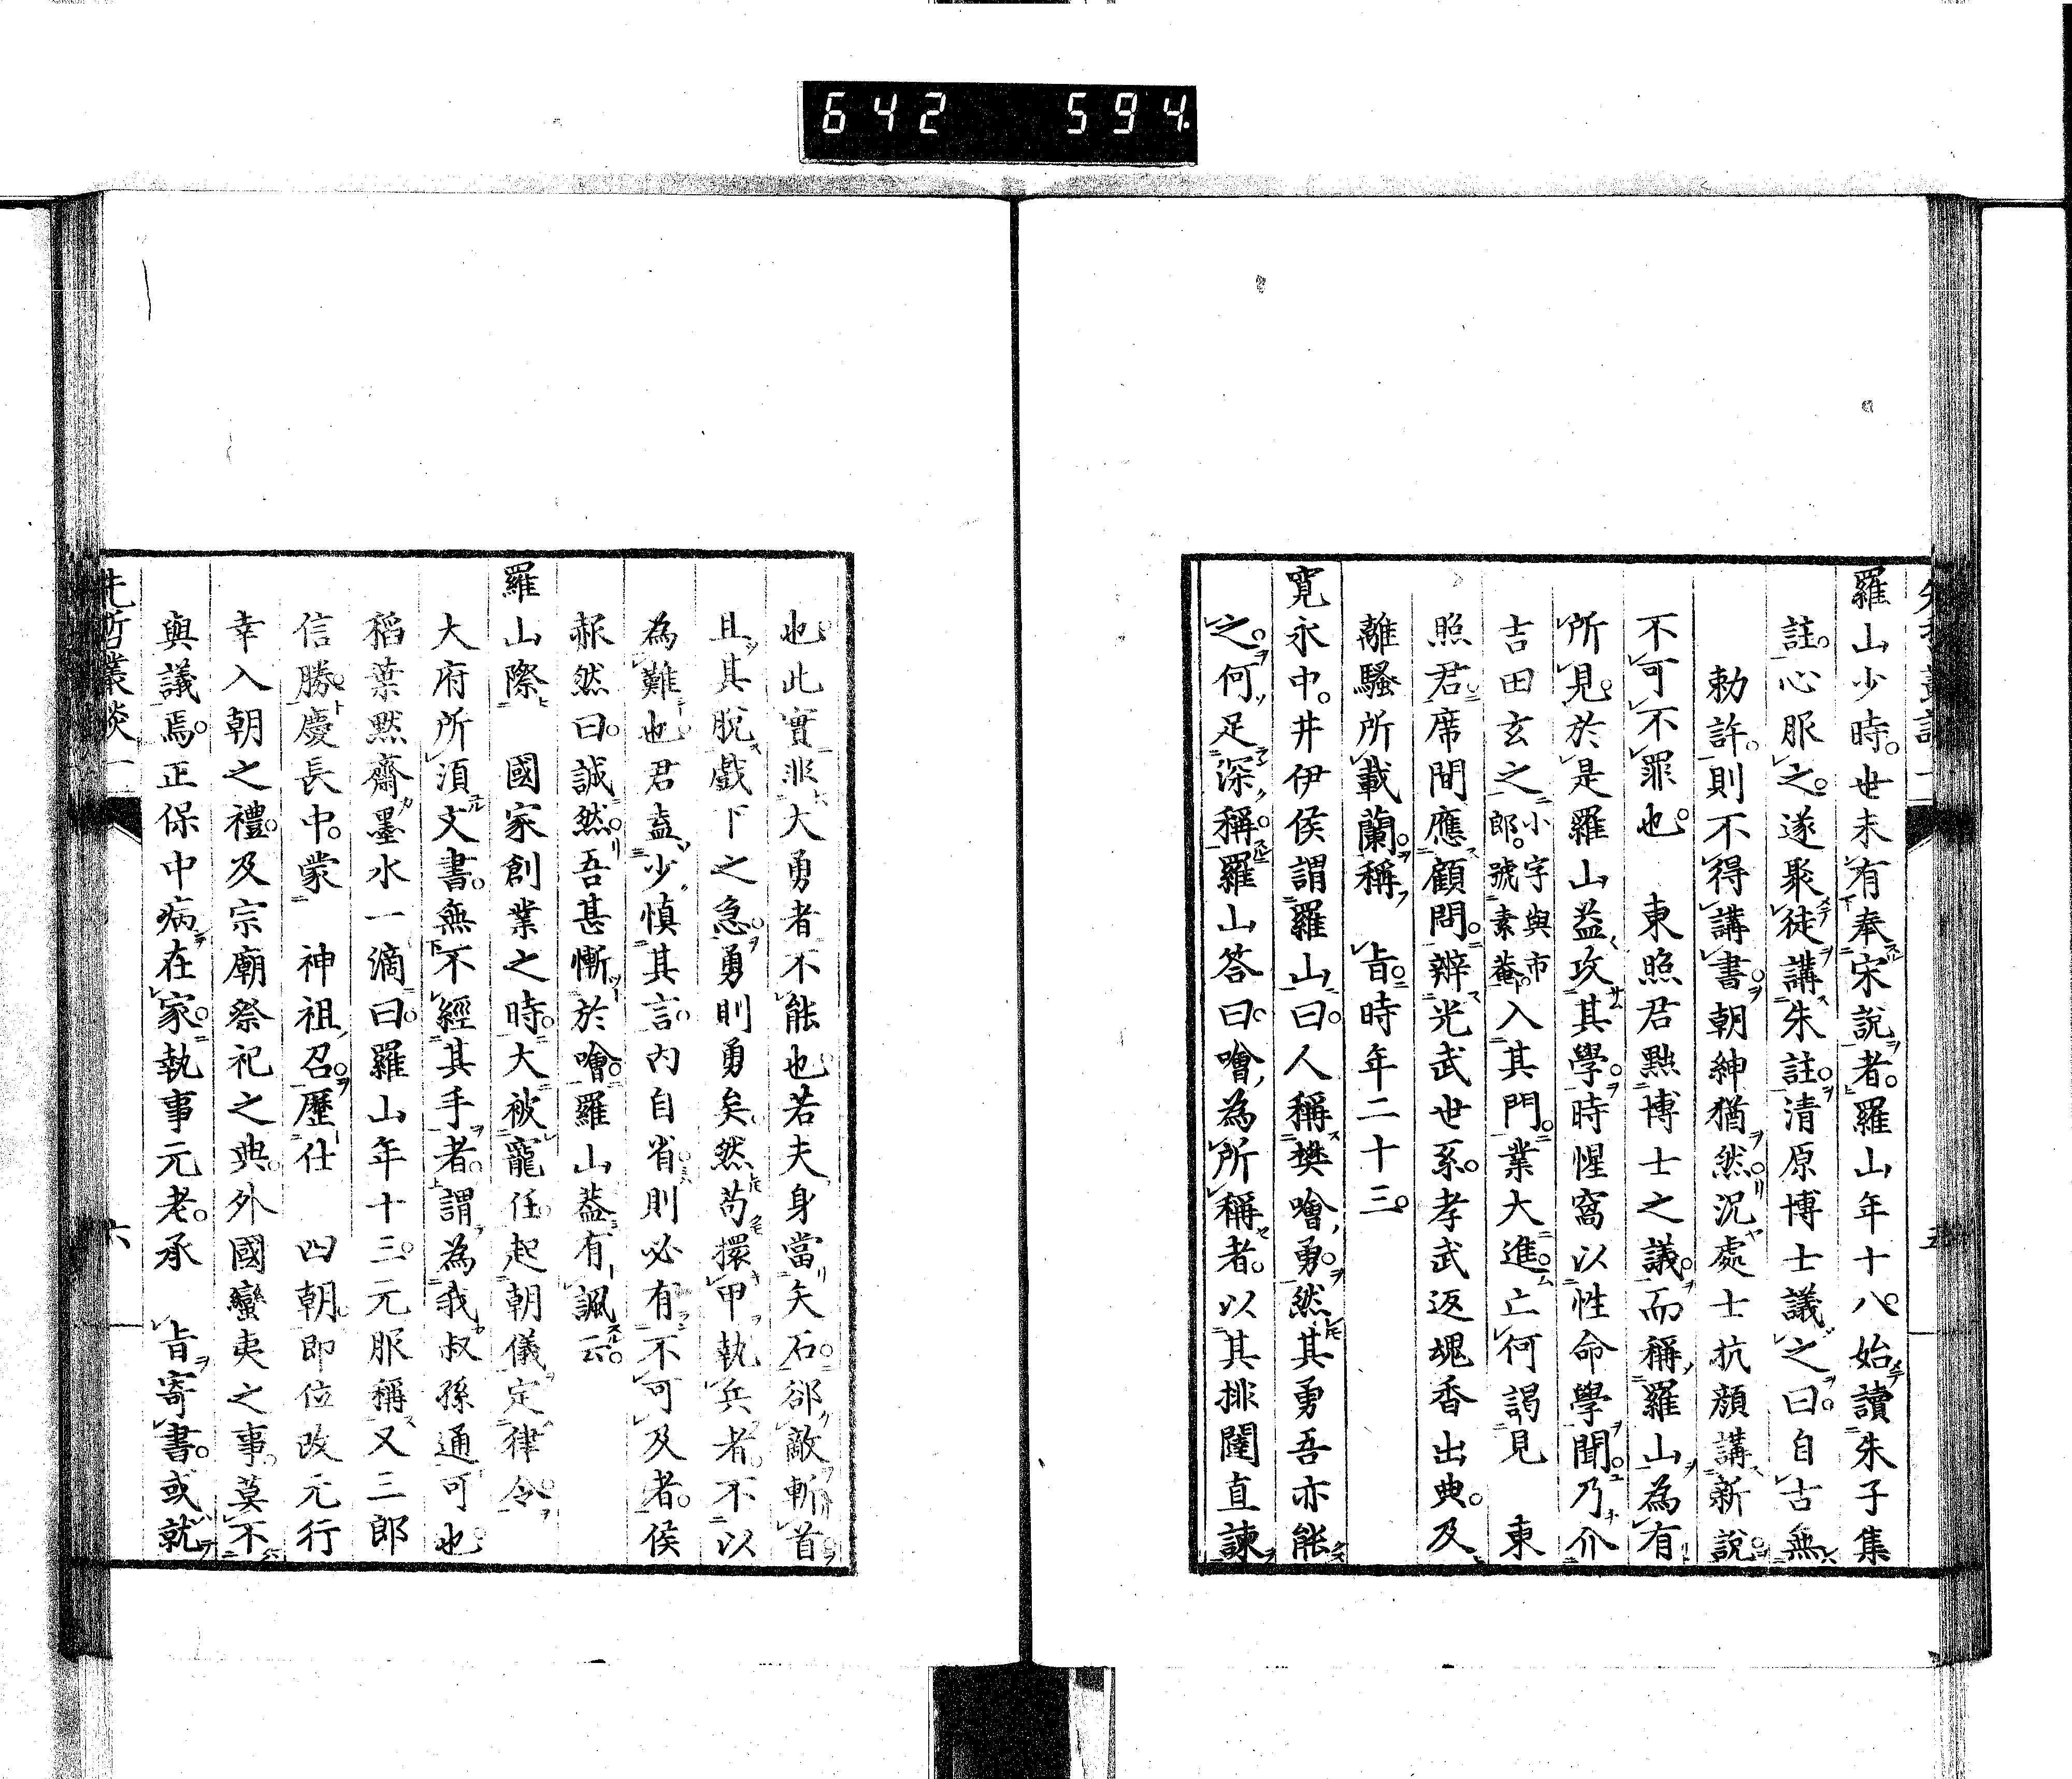 642 594.
羅山少時。世未有奉宋說者。羅山年十八。始讀朱子集
註。心服之。遂聚徒講朱註。清原博士議之曰。自古無
勅許。則不得講書。朝紳猶然。況處士抗顏講新說。
不可不罪也。 東照君黜博士之議。而稱羅山為有
所見。於是羅山益攻其學。時惺窩以性命學聞。乃介
吉田玄之小字與市郎。號素菴。入其門。業大進。亡何謁見 東
照君。席間應顧問。辨光武世系。孝武返魂香出典。及
離騷所載蘭。稱 旨。時年二十三。
寬永中。井伊侯謂羅山曰。人稱樊噲勇。然其勇吾亦能
之。何足深稱。羅山答曰。噲為所稱者。以其排闥直諫
也。此實非大勇者不能也。若夫身當矢石。郤敵斬首
且其脫戲下之急。勇則勇矣。然苟擐甲執兵者。不以
為難也。君盍少慎其言。內自省則必有不可及者。侯
赧然曰。誠然。吾甚慚於噲。羅山蓋有諷云。
羅山際 國家創業之時。大被寵任。起朝儀。定律令。
大府所須文書。無不經其手者。謂為我叔孫通可也。
稻葉默齋墨水一滴曰。羅山年十三元服。稱又三郎
信勝。慶長中。蒙 神祖召。歷仕 四朝。即位改元行
幸入朝之禮。及宗廟祭祀之典。外國蠻夷之事。莫不
與議焉。正保中病在家。執事元老。承 旨寄書。或就
先哲叢談 一
六